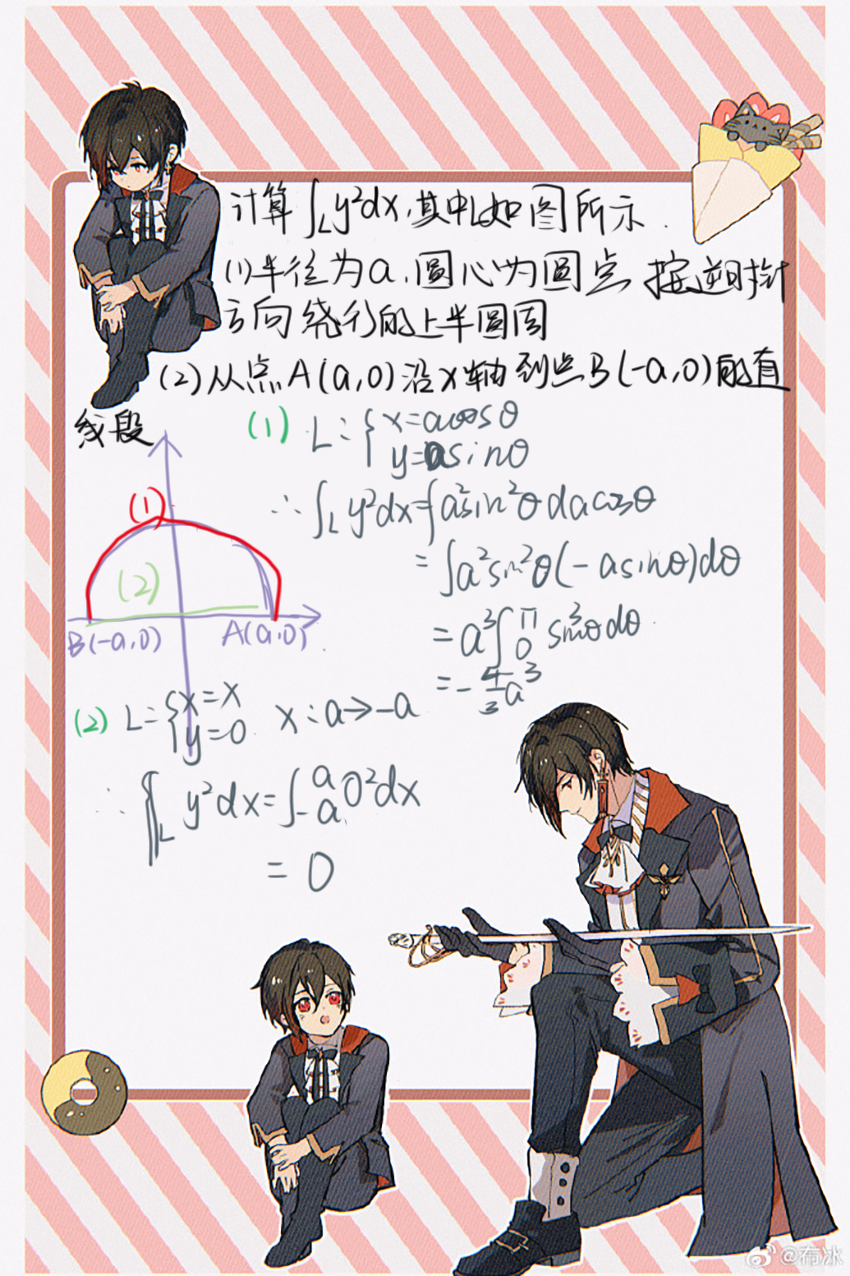 计算∫_L y²dx,其中L如图所示.
(1)半径为a,圆心为圆点 按逆时针
方向绕行的上半圆周
(2)从点A(a,0)沿x轴到点B(-a,0)的直
线段
(1) L:{x=acosθ
y=asinθ
∴∫_L y²dx=∫a²sin²θdacosθ
=∫a²sin²θ(-asinθ)dθ
=a³∫π 0 sin³θdθ
=-4/3 a³
(1)
(2)
B(-a,0) A(a,0)
(2) L:{x=x
y=0 x:a→-a
∴∫_L y²dx=∫a -a 0²dx
=0
@布冰